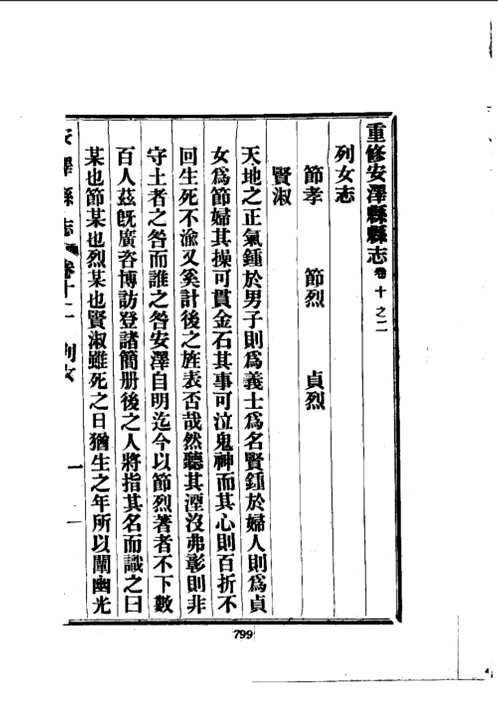 重修安澤縣縣志卷十之二
列女志
節孝 節烈 貞烈
賢淑
天地之正氣鍾於男子則爲義士爲名賢鍾於婦人則爲貞
女爲節婦其操可貫金石其事可泣鬼神而其心則百折不
回生死不渝又奚計後之旌表否哉然聽其湮沒弗彰則非
守土者之咎而誰之咎安澤自明迄今以節烈著者不下數
百人茲旣廣咨博訪登諸簡册後之人將指其名而識之曰
某也節某也烈某也賢淑雖死之日猶生之年所以闡幽光
安澤縣志 卷十二 列女 一
799